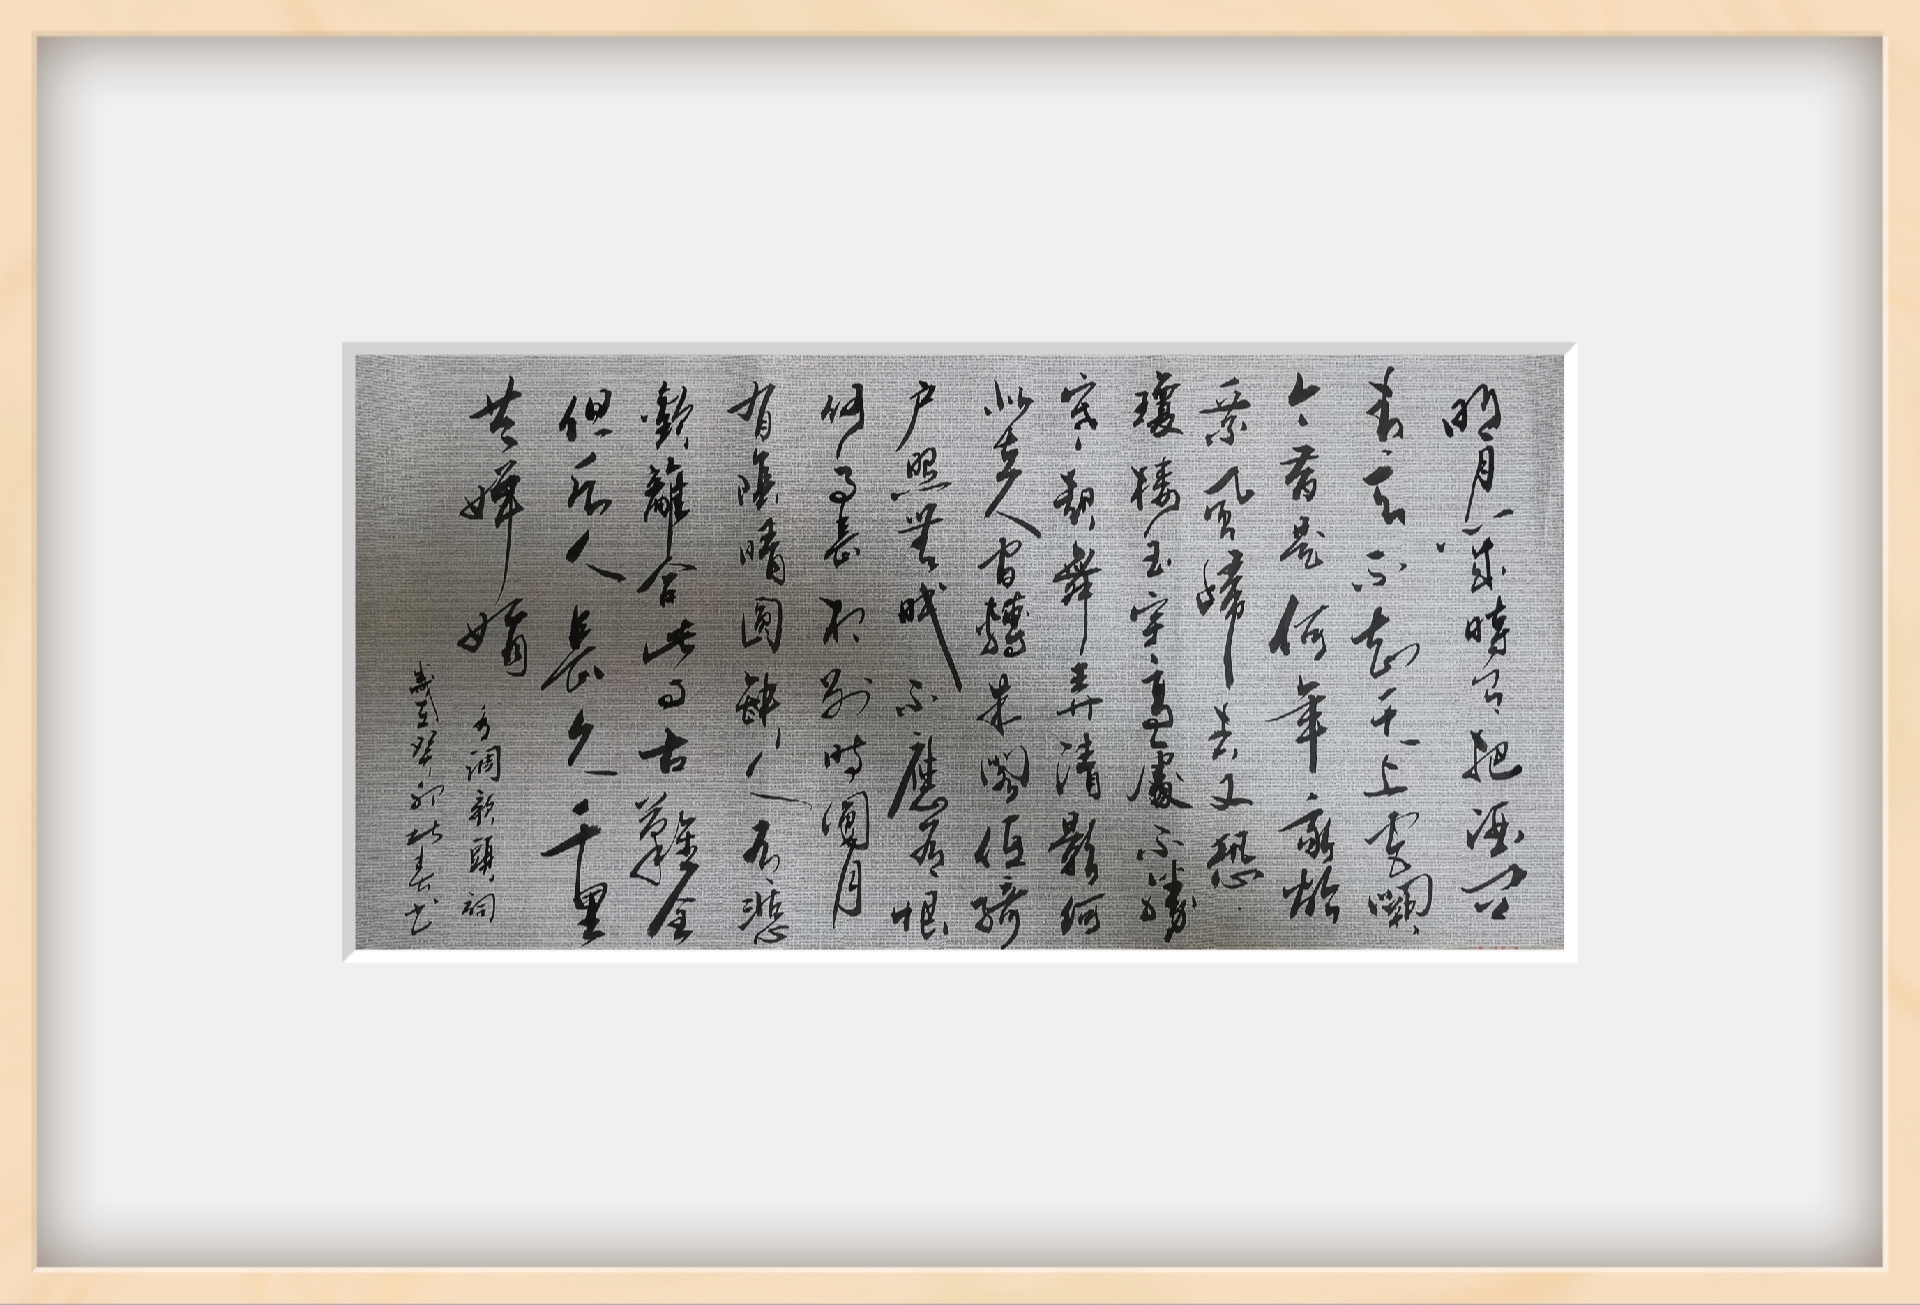 明月幾時有把酒問
青天不知天上宫闕
今昔是何年我欲
乘風歸去又恐
瓊樓玉宇高處不勝
寒起舞弄清影何
似在人間轉朱閣低綺
户照無眠不應有恨
何事長别時圓月
有陰晴圓缺人有悲
歡離合此事古難全
但願人長久千里
共嬋娟
水調歌頭詞
歲在癸卯春书